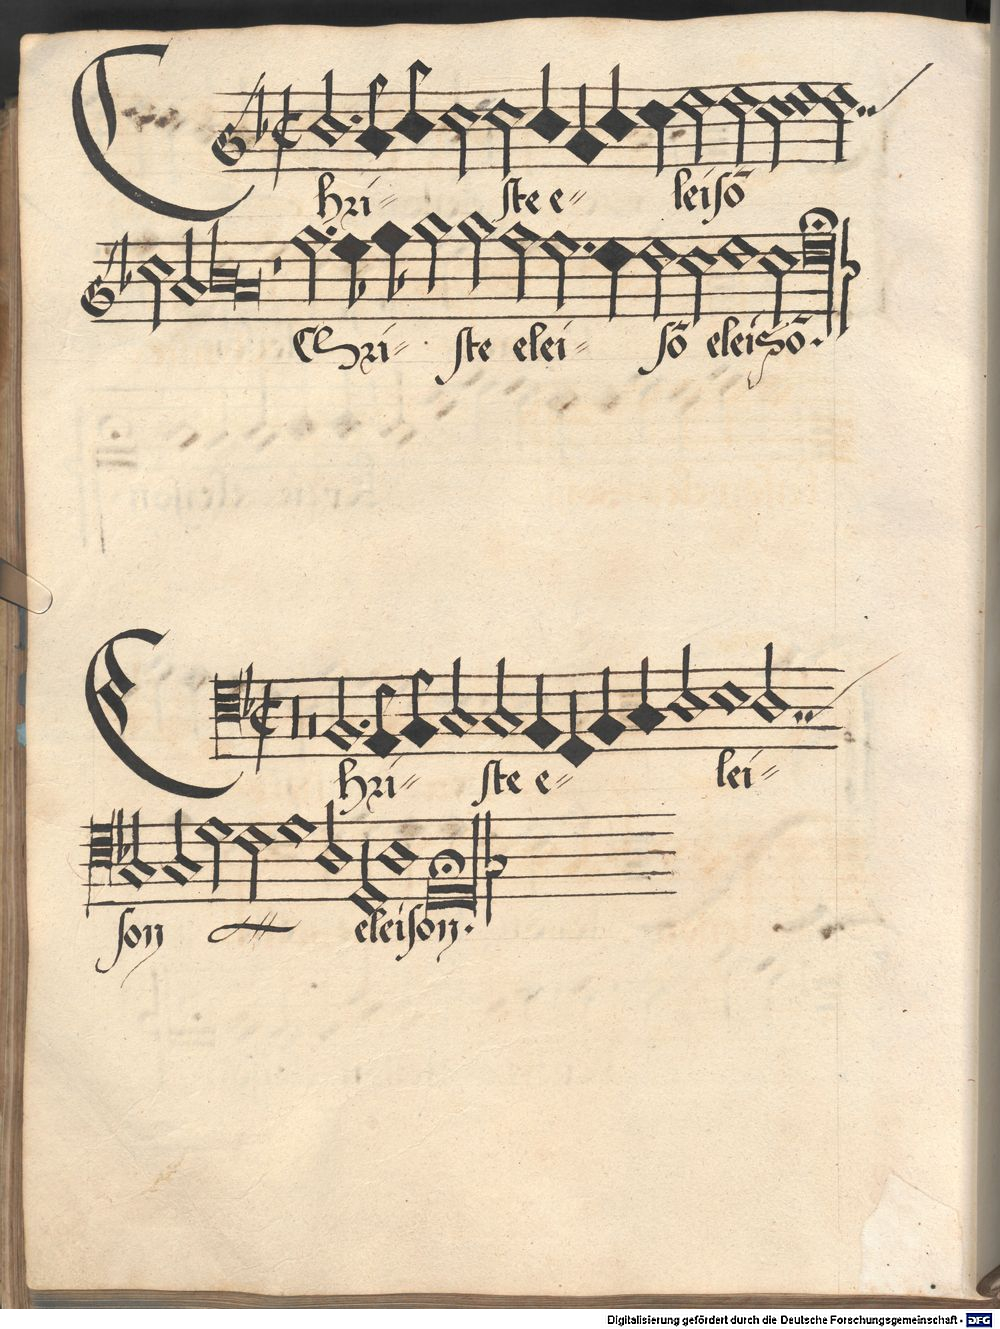 Chri- ste e- leisō
Chri- ste elei- sō eleisō.
Chri- ste e- lei-
son eleison.
Digitalisierung gefördert durch die Deutsche Forschungsgemeinschaft - DFG